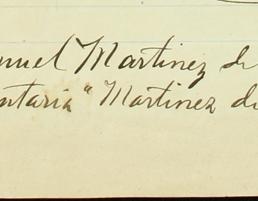 nuel Martinez de
ntaria" Martinez de